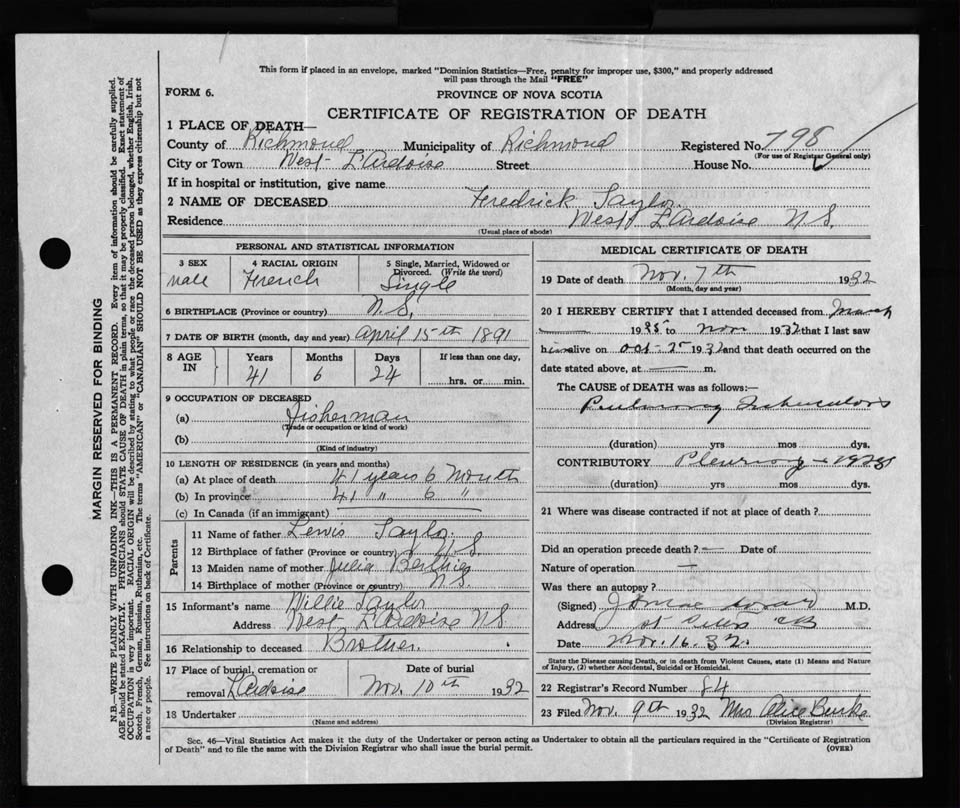 This form if placed in an envelope, marked "Dominion Statistics—Free, penalty for improper use, $300," and properly addressed
will pass through the Mail "FREE"
FORM 6.
PROVINCE OF NOVA SCOTIA
CERTIFICATE OF REGISTRATION OF DEATH
1 PLACE OF DEATH—
County of Richmond Municipality of Richmond Registered No. 798
(For use of Registrar General only)
City or Town West L'Ardoise Street House No.
If in hospital or institution, give name
2 NAME OF DECEASED Fredrick Taylor
Residence West L'Ardoise N.S.
(Usual place of abode)
PERSONAL AND STATISTICAL INFORMATION
3 SEX Male
4 RACIAL ORIGIN French
5 Single, Married, Widowed or Divorced. (Write the word) Single
6 BIRTHPLACE (Province or country) N.S.
7 DATE OF BIRTH (month, day and year) April 15th 1891
8 AGE IN Years Months Days If less than one day,
41 6 24 hrs. or min.
9 OCCUPATION OF DECEASED
(a) Fisherman
(Trade or occupation or kind of work)
(b)
(Kind of industry)
10 LENGTH OF RESIDENCE (in years and months)
(a) At place of death 41 years 6 Month
(b) In province 41 " 6 "
(c) In Canada (if an immigrant)
Parents
11 Name of father Lewis Taylor
12 Birthplace of father (Province or country) N.S.
13 Maiden name of mother Julia
14 Birthplace of mother (Province or country) N.S.
15 Informant's name Willie Taylor
Address West L'Ardoise N.S.
16 Relationship to deceased Brother.
17 Place of burial, cremation or removal L'Ardoise
Date of burial Nov. 10th 1932
18 Undertaker
(Name and address)
MEDICAL CERTIFICATE OF DEATH
19 Date of death Nov. 7th 1932
(Month, day and year)
20 I HEREBY CERTIFY that I attended deceased from March
19 to Nov 1932 that I last saw
him alive on Oct 25 1932 and that death occurred on the
date stated above, at — m.
The CAUSE of DEATH was as follows:—
Pulmonary Tuberculosis
(duration) yrs mos dys.
CONTRIBUTORY Pleurisy
(duration) yrs mos dys.
21 Where was disease contracted if not at place of death?
Did an operation precede death? — Date of
Nature of operation —
Was there an autopsy?
(Signed) M.D.
Address
Date Nov. 16. 32.
State the Disease causing Death, or in death from Violent Causes, state (1) Means and Nature
of Injury, (2) whether Accidental, Suicidal or Homicidal.
22 Registrar's Record Number 84
23 Filed Nov. 9th 1932 Mrs Alice Burke
(Division Registrar)
Sec. 46—Vital Statistics Act makes it the duty of the Undertaker or person acting as Undertaker to obtain all the particulars required in the "Certificate of Registration
of Death" and to file the same with the Division Registrar who shall issue the burial permit.
(OVER)
MARGIN RESERVED FOR BINDING
N.B.—WRITE PLAINLY WITH UNFADING INK—THIS IS A PERMANENT RECORD. Every item of information should be carefully supplied.
AGE should be stated EXACTLY. PHYSICIANS should STATE CAUSE OF DEATH in plain terms, so that it may be properly classified. Exact statement of
OCCUPATION is very important. RACIAL ORIGIN will be described by stating to what people or race the deceased person belonged, whether English, Irish,
Scotch, French, German, Russian, Ruthenian, etc. The terms "AMERICAN" or "CANADIAN" SHOULD NOT BE USED as they express citizenship but not
a race or people. See instructions on back of Certificate.